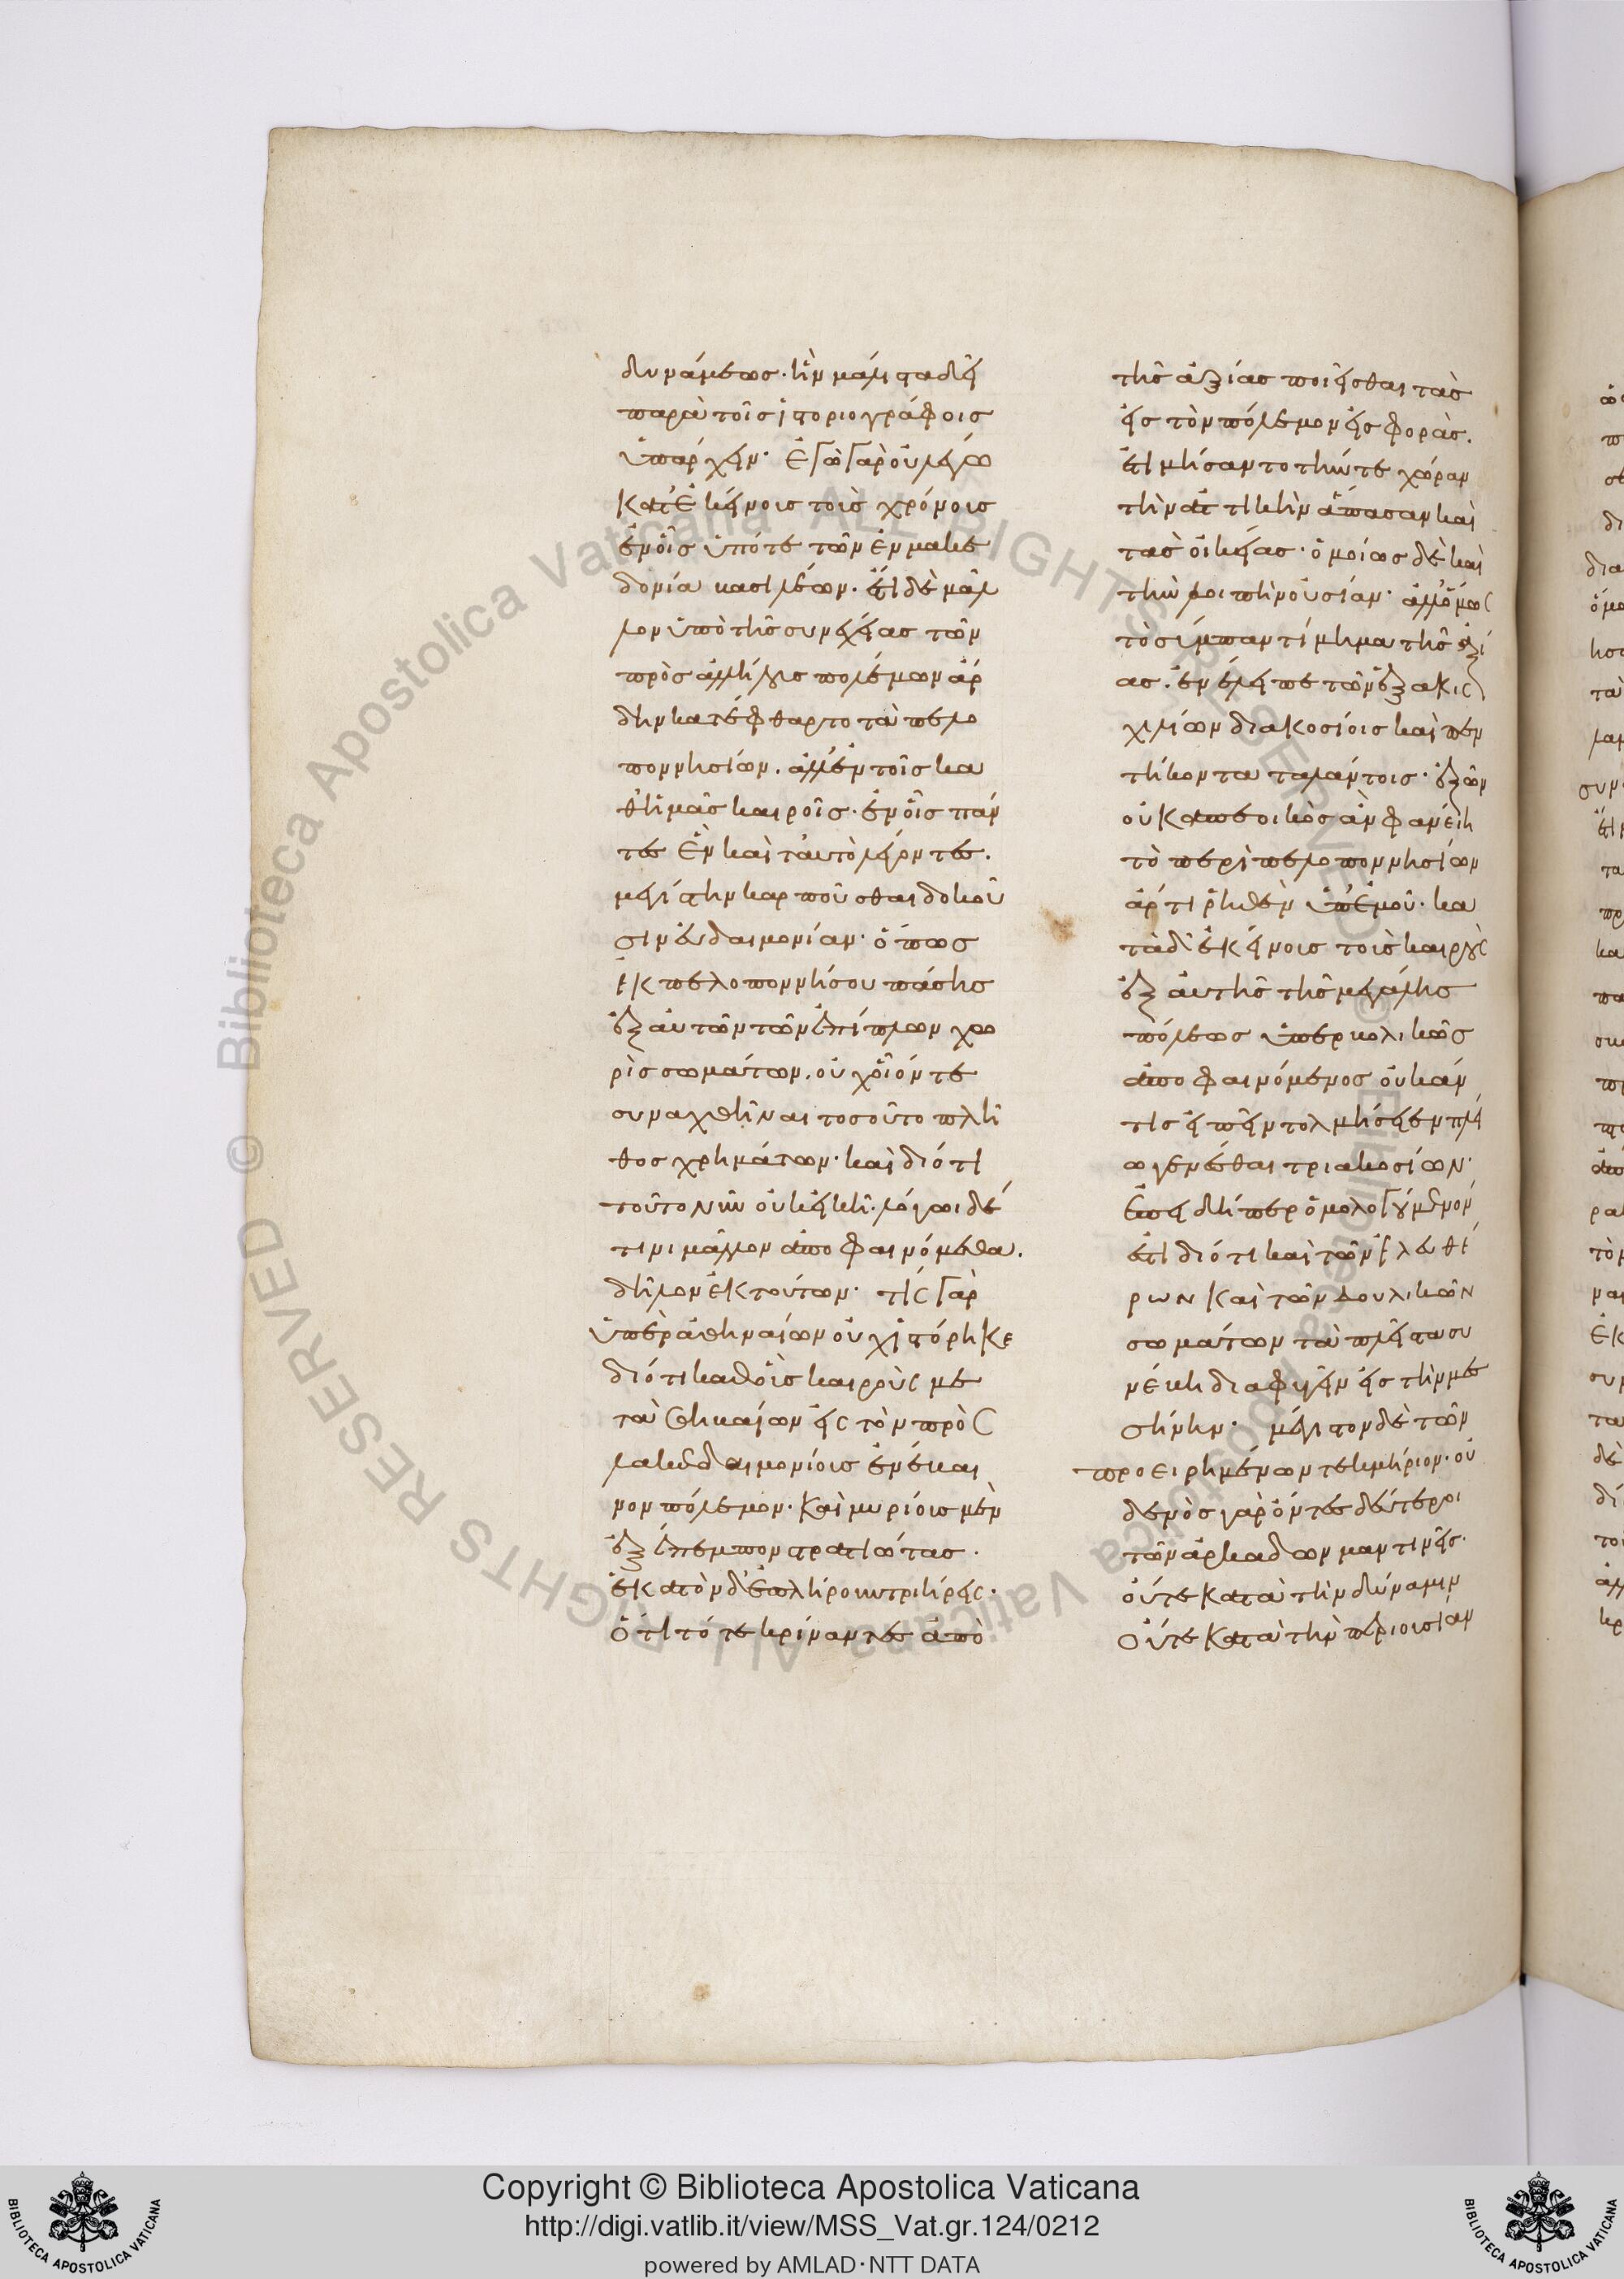 δυνάμεως· ἣν μάλιστα δεῖ
παρὰ τοῖς ἱστοριογράφοις
ὑπάρχειν· ἐγὼ γὰρ οὐ λέγω
κατ' ἐκείνοις τοῖς χρόνοις
ἐν οἷς ὑπό τε τῶν ἐν μακε
δονία βασιλέων· ἔτι δὲ μᾶλ
λον ὑπὸ τῆς συνεχείας τῶν
πρὸς ἀλλήλους πολέμων ἄρ
δην κατέφθαρτο τὰ πελο
πον̣νησίων. ἀλλ' ἐν τοῖς κα
θ' ἡμᾶς καιροῖς· ἐν οἷς πάν
τες ἓν καὶ ταὐτὸ λέγοντες.
μεγίστην καρποῦσθαι δοκοῦ
σιν εὐδαιμονίαν· ὅπως
ἐκ πελοποννήσου πάσης
ἐξ αὐτῶν τῶν ἐπίπλων χω
ρὶς σωμάτων. οὐχ οἷόν τε
συναχθῆναι τοσοῦτο πλῆ
θος χρημάτων· καὶ διότι
τοῦτο νῦν οὐκ εἰκῆ· λόγωι δέ
τινι μᾶλλον ἀποφαινόμεθα.
δῆλον ἐκ τούτων· τίς γὰρ
ὑπὲρ ἀθηναίων οὐχ ἱστόρηκε
διότι καθ' οὓς καιροὺς με
τὰ θηβαίων εἰς τὸν πρὸς
λακεδαιμονίοις ἐνέβαι
νον πόλεμον· καὶ μυρίοις μὲν
ἐξέπεμπον στρατιώτας·
ἑκατὸν δ' ἐπλήρουν τριήρεις·
ὅτι τότε κρίναντες ἀπὸ
τῆς ἀξίας ποιεῖσθαι τὰς
εἰς τὸν πόλεμον εἰσφοράς.
ἐτιμήσαντο τήν τε χώραν
τὴν ἀττικὴν ἅπασαν καὶ
τὰς οἰκείας· ὁμοίως δὲ καὶ
τὴν λοιπὴν οὐσίαν· ἀλλ' ὅμως
τὸ σύμπαν τίμημα τῆς ἀξί
ας. ἐνέλειπε τῶν ἑξακισ
χιλίων διακοσίοις καὶ πεν
τήκοντα ταλάντοις· ἐξ ὧν
οὐκ ἀπεοικὸς ἂν φανείη
τὸ περὶ πελοποννησίων
ἄρτι ῥηθὲν ὑπ' ἐμοῦ· κα
τὰ δ' ἐκείνοις τοῖς καιροὺς
ἐξ αὐτῆς τῆς μεγάλης
πόλεως ὑπερβολικῶς
ἀποφαινόμενος οὐκ ἄν
τις εἰπεῖν τολμήσειεν πλεί
ω γενέσθαι τριακοσίων·
ἐπειδήπερ ὁμολογούμενόν
ἐστι διότι καὶ τῶν ἐλευθέ
ρων καὶ τῶν δουλικῶν
σωμάτων τὰ πλεῖστα συ
νέβη διαφυγεῖν εἰς τὴν με
σήνην· μέγιστον δὲ τῶν
προειρημένων τεκμήριον· οὐ
δενὸς γὰρ ὄντες δεύτεροι
τῶν ἀρκάδων μαντινεῖς·
οὔτε κατὰ τὴν δύναμιν
οὔτε κατὰ τὴν περιουσίαν
Copyright © Biblioteca Apostolica Vaticana
http://digi.vatlib.it/view/MSS_Vat.gr.124/0212
powered by AMLAD·NTT DATA